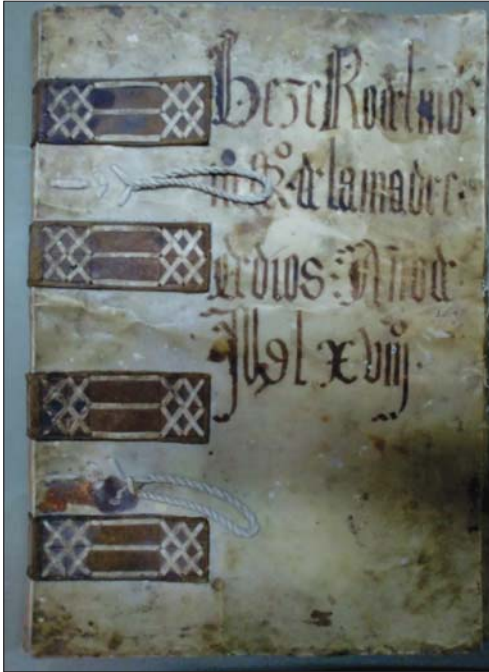 BezeRo del mo
de la madre.
de dios. Año de
Mdlxviij.